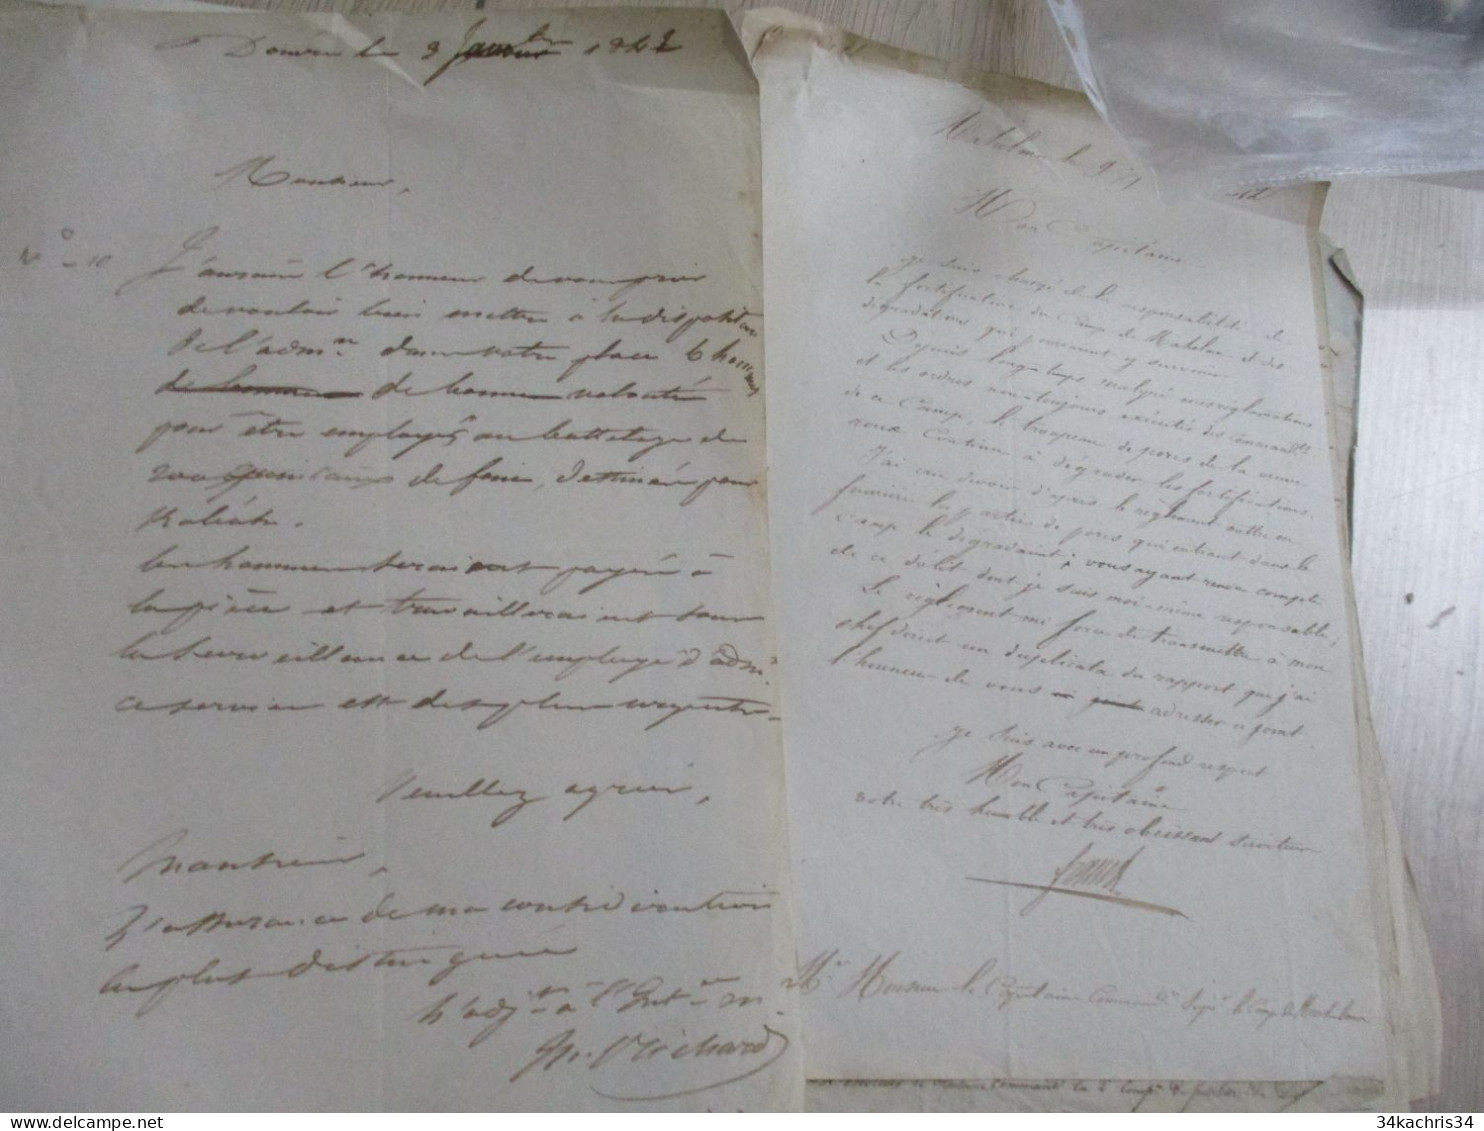 le 9 1842
Monsieur,
N° 10
J'aurais l'honneur de vous prier
de vouloir bien mettre à la disposition
de l'adm.on dans votre place 6 hommes
de bonne volonté
pour être employés au bottelage de
200 de foin, destinés pour
les hommes seraient payés à
la pièce et travailleraient sous
la surveillance de l'employé d'adm.
ce service est des plus urgents.
Veuillez agréer,
Monsieur,
l'assurance de ma considération
la plus distinguée
L'adj.t à l'Int.ce m.
Richard
le 9
Mon Capitaine
Je suis chargé et la responsabilité de
la fortification du Camp de et des
dégradations qui peuvent y survenir
Depuis longtemps malgré mes réclamations
et les ordres non toujours exécutés des Commandts
de ce Camp, le troupeau de porcs de la
continue à dégrader les fortifications.
J'ai cru devoir d'après le règlement mettre en
fourrière la partie de porcs qui entrant dans le
Camp le dégradaient; vous ayant rendu compte
de ce délit dont je suis moi-même responsable,
Le règlement me force de transmettre à mon
chef direct un duplicata du rapport que j'ai
l'honneur de vous adresser ci joint
Je suis avec un profond respect
Mon Capitaine
votre très humble et très obéissant Serviteur
Mr le Capitaine Command.t Sup.r le Camp de
34kachris34